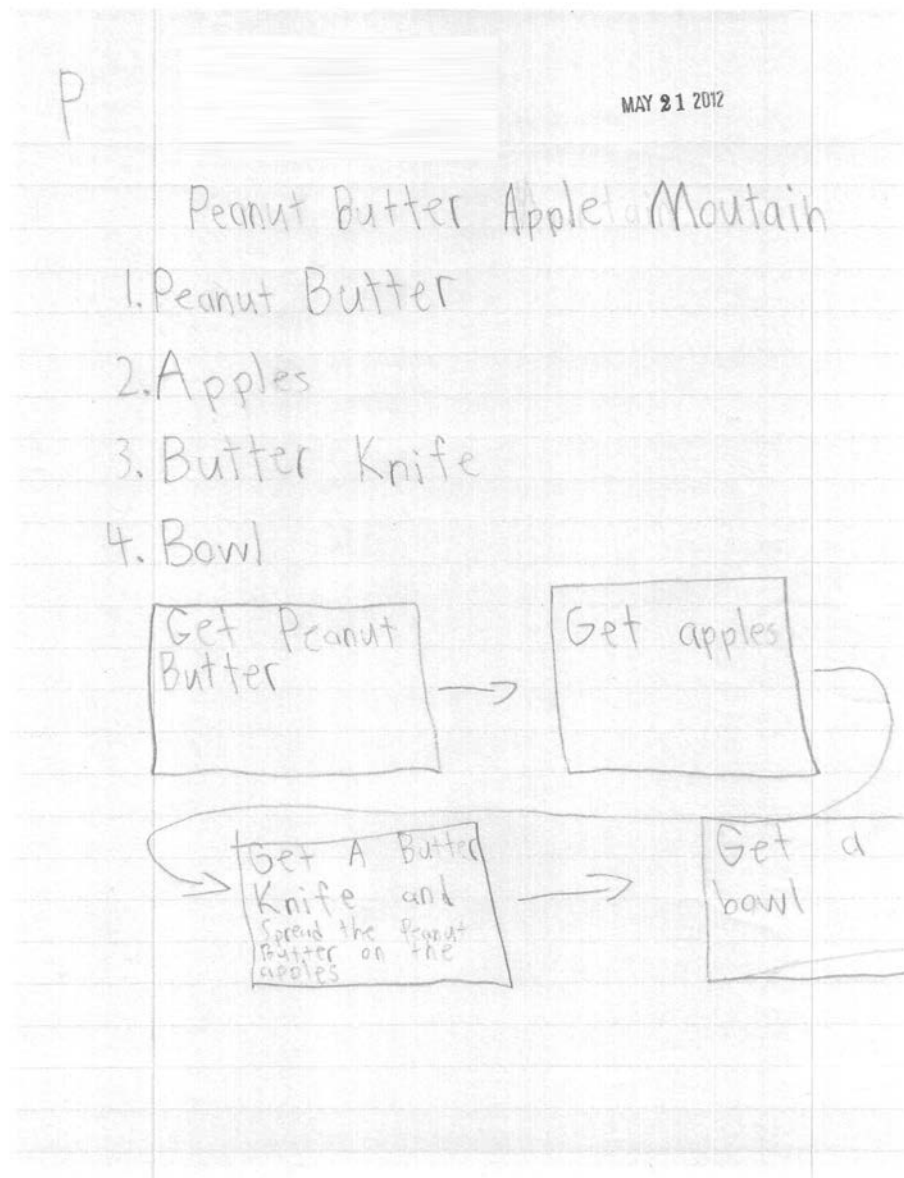 P
MAY 21 2012
Peanut Butter Apple Moutain
1. Peanut Butter
2. Apples
3. Butter Knife
4. Bowl
Get Peanut
Butter
Get apples
Get A Butter
Knife and
Spread the Peanut
Butter on the
apples
Get a
bowl